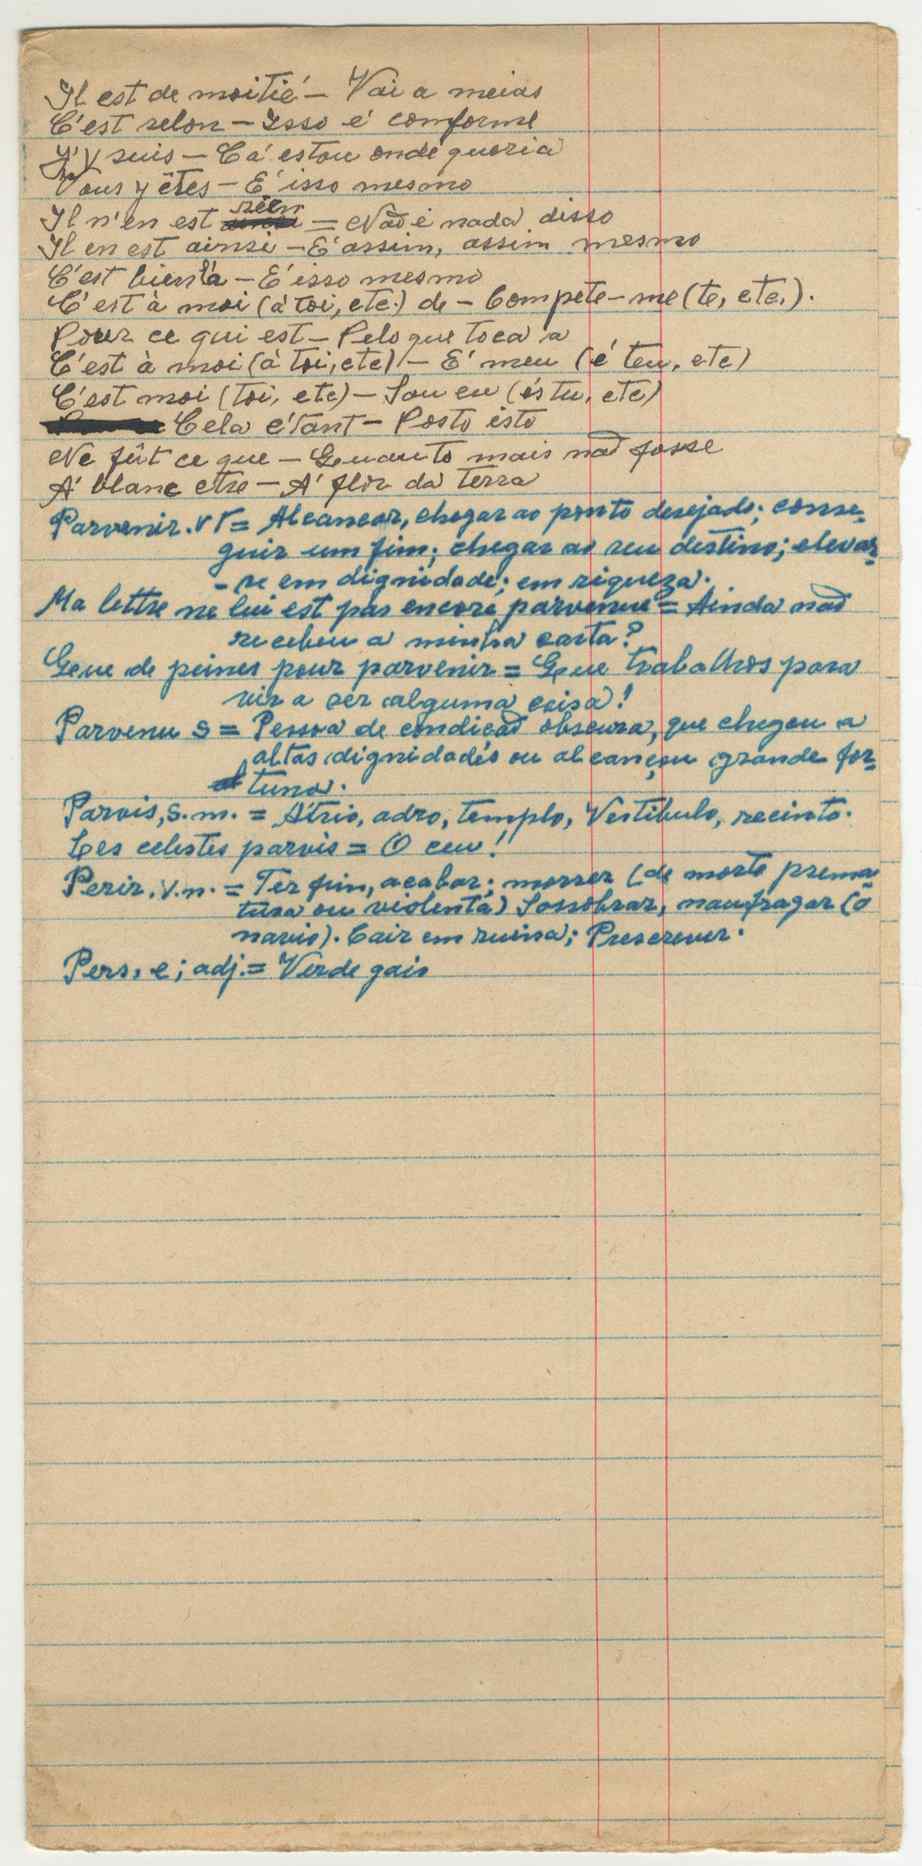 Il est de moitié – Vai a meias
C'est selon – Isso é conforme
J'y suis – Cá estou onde queria
Vous y êtes – E' isso mesmo
Il n'en est rien = Não é nada disso
Il en est ainsi – E' assim, assim mesmo
C'est bien là – E' isso mesmo
C'est à moi (à toi, etc.) de – Compete-me (te, etc.).
Pour ce qui est – Pelo que toca a
C'est à moi (à toi, etc) – E' meu (é teu, etc)
C'est moi (toi, etc) – Sou eu (és tu, etc)
Cela étant – Posto isto
Ne fût ce que – Quanto mais não fosse
A' blanc etre – A' flôr da terra
Parvenir. v r = Alcancar, chegar ao ponto desejado; conse-
guir um fim; chegar ao seu destino; elevar-
-se em dignidade; em riqueza.
Ma lettre ne lui est pas encore parvenue = Ainda não
recebeu a minha carta?
Que de peines pour parvenir = Que trabalhos para
vir a ser alguma coisa!
Parvenu s = Pessoa de condição obscura, que chegou a
altas dignidades ou alcançou grande for-
tuna.
Parvis, s.m. = Atrio, adro, templo, Vestibulo, recinto.
Les celestes parvis = O ceu!
Perir. v.n. = Ter fim, acabar; morrer (de morte prema-
tura ou violenta) Sossobrar, naufragar (o
navio). Cair em ruina; Prescrever.
Pers, e; adj. = Verde gaio